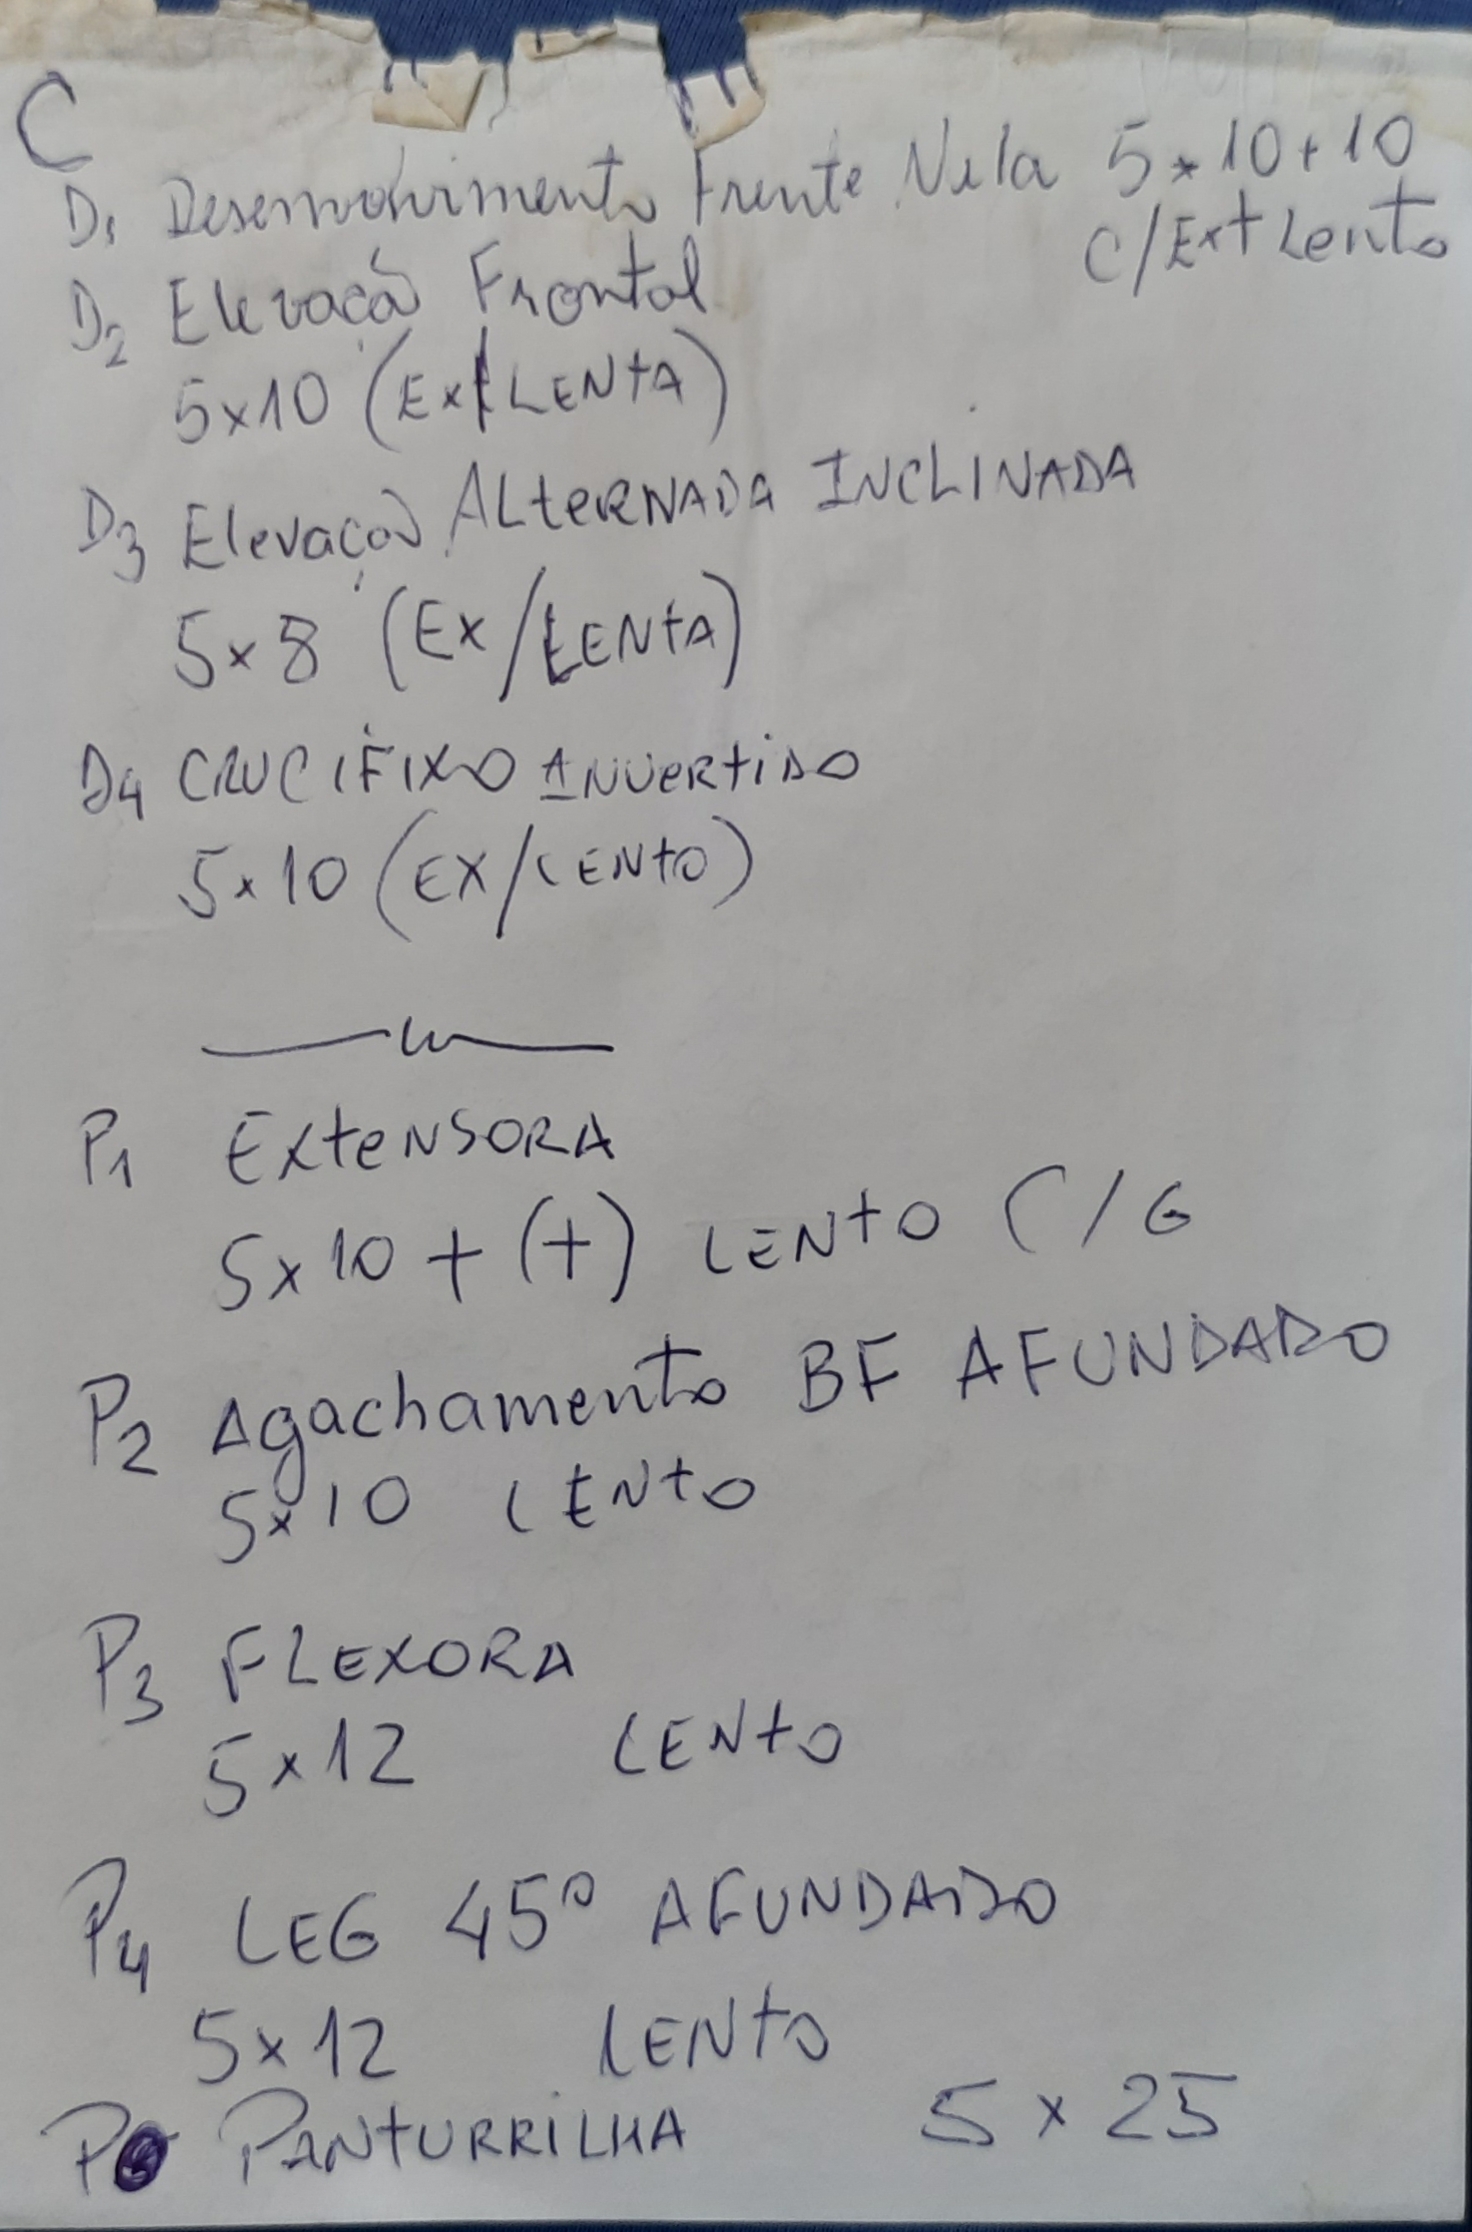 C
D1 Desenvolvimento Frente Nela 5x10+10
C/Ext Lento
D2 Elevação Frontal
5x10 (Ex/LENtA)
D3 Elevação ALteRNADA INCLINADA
5x8 (Ex/LENtA)
D4 CRUCIFIXO INVeRtiDO
5x10 (EX/LENtO)
P1 EXteNSORA
5x10 + (+) LENtO C/G
P2 Agachamento BF AFUNDADO
5x10 LENtO
P3 FLEXORA
5x12 LENtO
P4 LEG 45º AFUNDADO
5x12 LENtO
P PANtURRiLHA 5x25